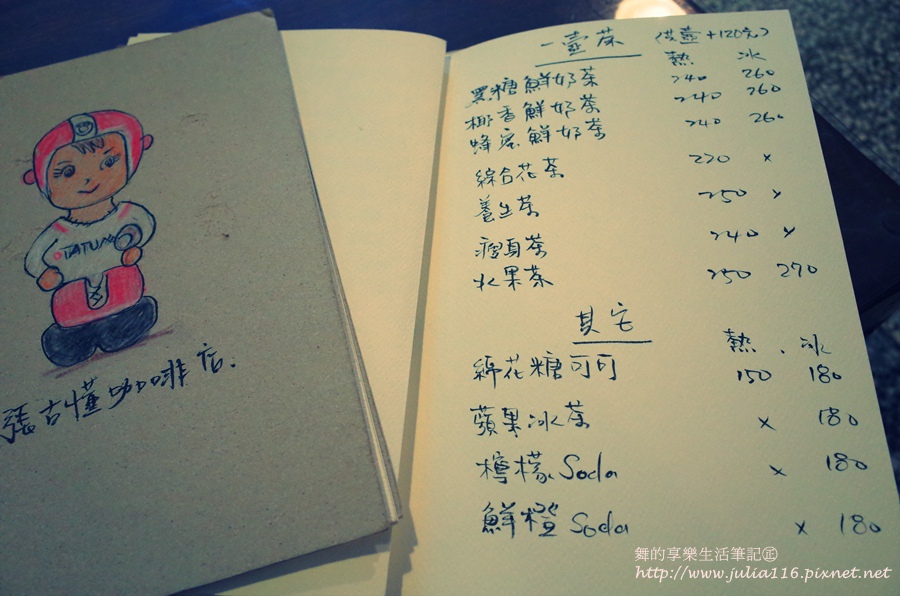 TATUNG
張吉懂咖啡店.
一壺茶 (共壺+120元)
熱 冰
黑糖鮮奶茶 240 260
椰香鮮奶茶 240 260
蜂蜜鮮奶茶 240 260
綜合花茶 220 x
養生茶 250 x
瘦身茶 240 x
水果茶 250 270
其它
熱 . 冰
綿花糖可可 150 180
蘋果冰茶 x 180
檸檬 Soda x 180
鮮橙 Soda x 180
舞的享樂生活筆記
http://www.julia116.pixnet.net